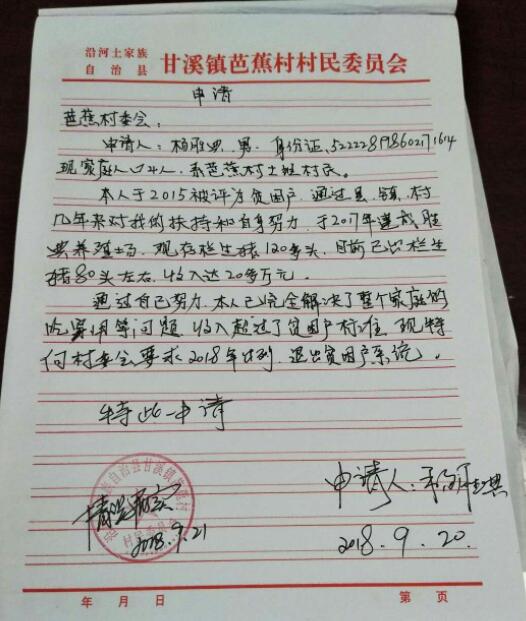 沿河土家族
自治县
甘溪镇芭蕉村村民委员会
申请
芭蕉村委会:
申请人:杨胜典、男、身份证,522228198602171614
现家庭人口4人,系芭蕉村土组村民。
本人于2015被评为贫困户,通过县、镇、村
几年来对我的扶持和自身努力,于2017年建成胜
典养殖场,现存栏生猪120多头,目前已出栏生
猪80头左右,收入达20多万元。
通过自己努力,本人已完全解决了整个家庭的
吃穿用等问题,收入超过了贫困户标准,现特
向村委会要求2018年计划,退出贫困户系统。
特此申请
申请人:杨胜典
2018.9.20
2018.9.21
年 月 日
第 页